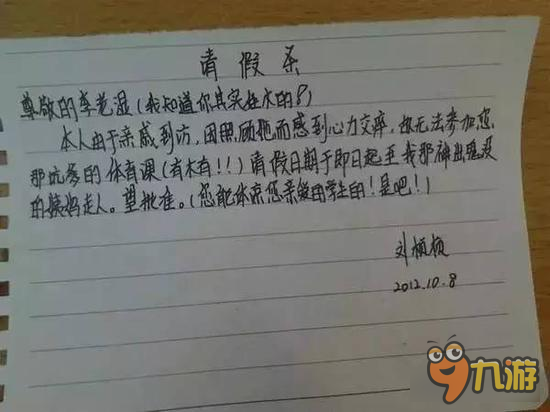 请假条
尊敬的李老湿(我知道你其实姓水的!)
本人由于亲戚到访,因照顾她而感到心力交瘁,故无法参加您
那坑爹的体育课(有木有!!)请假日期于即日起至我那神出鬼没
的姨妈走人。望批准。(您能体谅您亲爱的学生的!是吧!)
刘桢桢
2012.10.8
九游